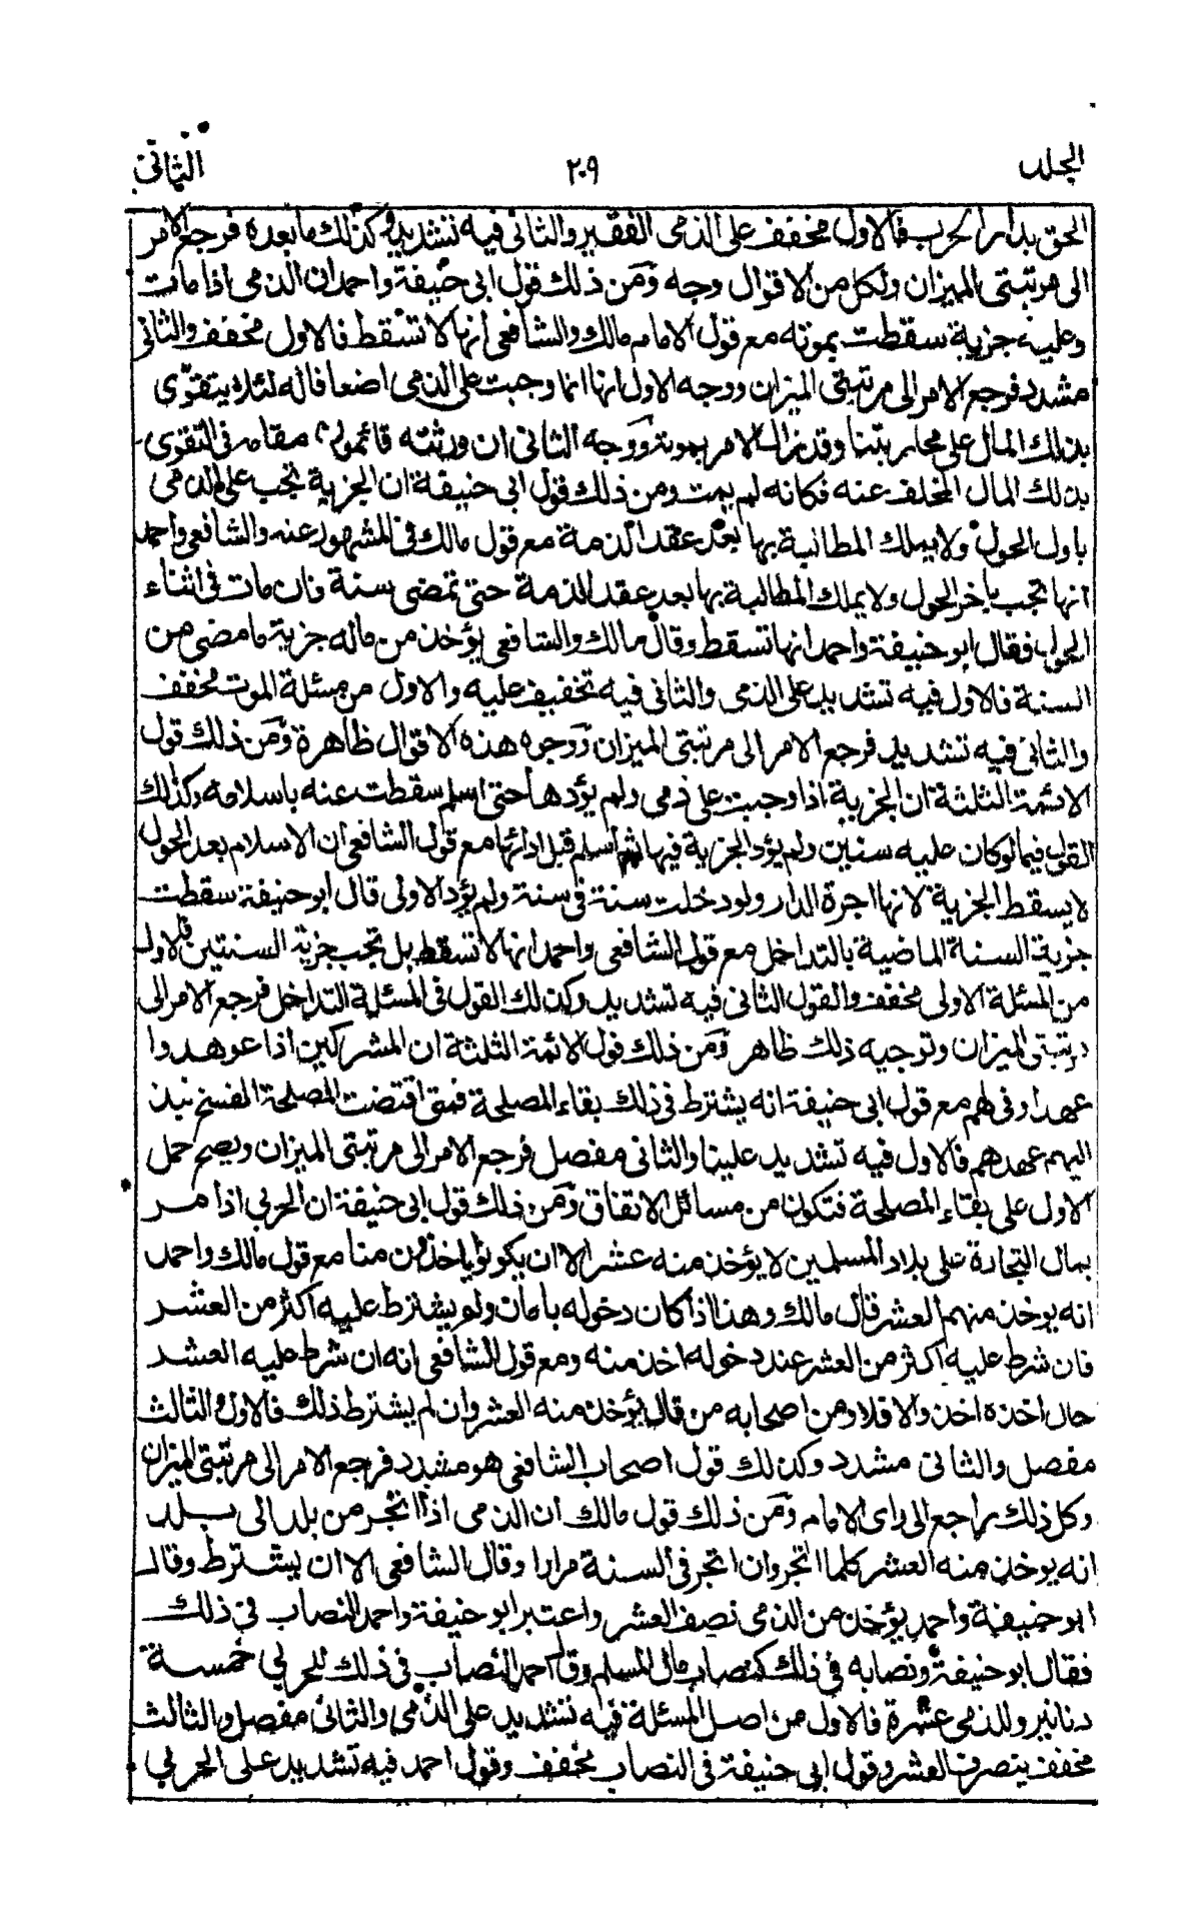 المجلد ٢٠٩ الثانى
الحق بدار الحرب فالاول مخفف على الذمى الفقير والثانى فيه تشديد وكذلك ما بعده فرجع الامر
الى مرتبتى الميزان ولكل من الاقوال وجه ومن ذلك قول ابى حنيفة واحمد ان الذمى اذا مات
وعليه جزية سقطت بموته مع قول الامام مالك والشافعى انها لا تسقط فالاول مخفف والثانى
مشدد فرجع الامر الى مرتبتى الميزان ووجه الاول انها انما وجبت على الذمى اضعافا له لئلا يتقوى
بذلك المال على محاربتنا وقد زال الامر بموته ووجه الثانى ان ورثته قائمون مقامه فى التقوى
بذلك المال المخلف عنه فكانه لم يمت ومن ذلك قول ابى حنيفة ان الجزية تجب على الذمى
باول الحول ولا يملك المطالبة بها بعد عقد الذمة مع قول مالك فى المشهور عنه والشافعى واحمد
انها تجب باخر الحول ولا يملك المطالبة بها بعد عقد الذمة حتى تمضى سنة فان مات فى اثناء
الحول فقال ابو حنيفة واحمد انها تسقط وقال مالك والشافعى يؤخذ من ماله جزية ما مضى من
السنة فالاول فيه تشديد على الذمى والثانى فيه تخفيف عليه والاول من مسئلة الموت مخفف
والثانى فيه تشديد فرجع الامر الى مرتبتى الميزان ووجوه هذه الاقوال ظاهرة ومن ذلك قول
الائمة الثلثة ان الجزية اذا وجبت على ذمى ولم يؤدها حتى اسلم سقطت عنه باسلامه وكذلك
القول فيما لو كان عليه سنين ولم يؤد الجزية فيها ثم اسلم قبل ادائها مع قول الشافعى ان الاسلام بعد الحول
لا يسقط الجزية لانها اجرة الدار ولو دخلت سنة فى سنة ولم يؤد الاولى قال ابو حنيفة سقطت
جزية السنة الماضية بالتداخل مع قول الشافعى واحمد انها لا تسقط بل تجب جزية السنتين فالاول
من المسئلة الاولى مخفف والقول الثانى فيه تشديد وكذلك القول فى المسئلة التداخل فرجع الامر الى
مرتبتى الميزان وتوجيه ذلك ظاهر ومن ذلك قول الائمة الثلثة ان المشركين اذا عوهدوا
عهدا وفى لهم مع قول ابى حنيفة انه يشترط فى ذلك بقاء المصلحة فمتى اقتضت المصلحة الفسخ نبذ
اليهم عهدهم فالاول فيه تشديد علينا والثانى مفصل فرجع الامر الى مرتبتى الميزان ويصح حمل
الاول على بقاء المصلحة فتكون من مسائل الاتفاق ومن ذلك قول ابى حنيفة ان الحربى اذا مر
بمال التجارة على بلاد المسلمين لا يؤخذ منه عشر الا ان يكونوا ياخذون منا مع قول مالك واحمد
انه يوخذ منهم العشر قال مالك وهذا اذا كان دخوله بامان ولم يشترط عليه اكثر من العشر
فان شرط عليه اكثر من العشر عند دخوله اخذ منه ومع قول الشافعى انه ان شرط عليه العشر
حال اخذه اخذ والا فلا ومن اصحابه من قال يؤخذ منه العشر وان لم يشترط ذلك فالاول والثالث
مفصل والثانى مشدد وكذلك قول اصحاب الشافعى هو مشدد فرجع الامر الى مرتبتى الميزان
وكل ذلك راجع الى راى الامام ومن ذلك قول مالك ان الذمى اذا اتجر من بلد الى بلد
انه يوخذ منه العشر كلما اتجر وان اتجر فى السنة مرارا وقال الشافعى الا ان يشترط وقال
ابو حنيفة واحمد يؤخذ من الذمى نصف العشر واعتبر ابو حنيفة واحمد النصاب فى ذلك
فقال ابو حنيفة ونصابه فى ذلك كنصاب مال المسلم وقال احمد النصاب فى ذلك للحربى خمسة
دنانير وللذمى عشرة فالاول من اصل المسئلة فيه تشديد على الذمى والثانى مفصل والثالث
مخفف بنصف العشر وقول ابى حنيفة فى النصاب مخفف وقول احمد فيه تشديد على الحربى